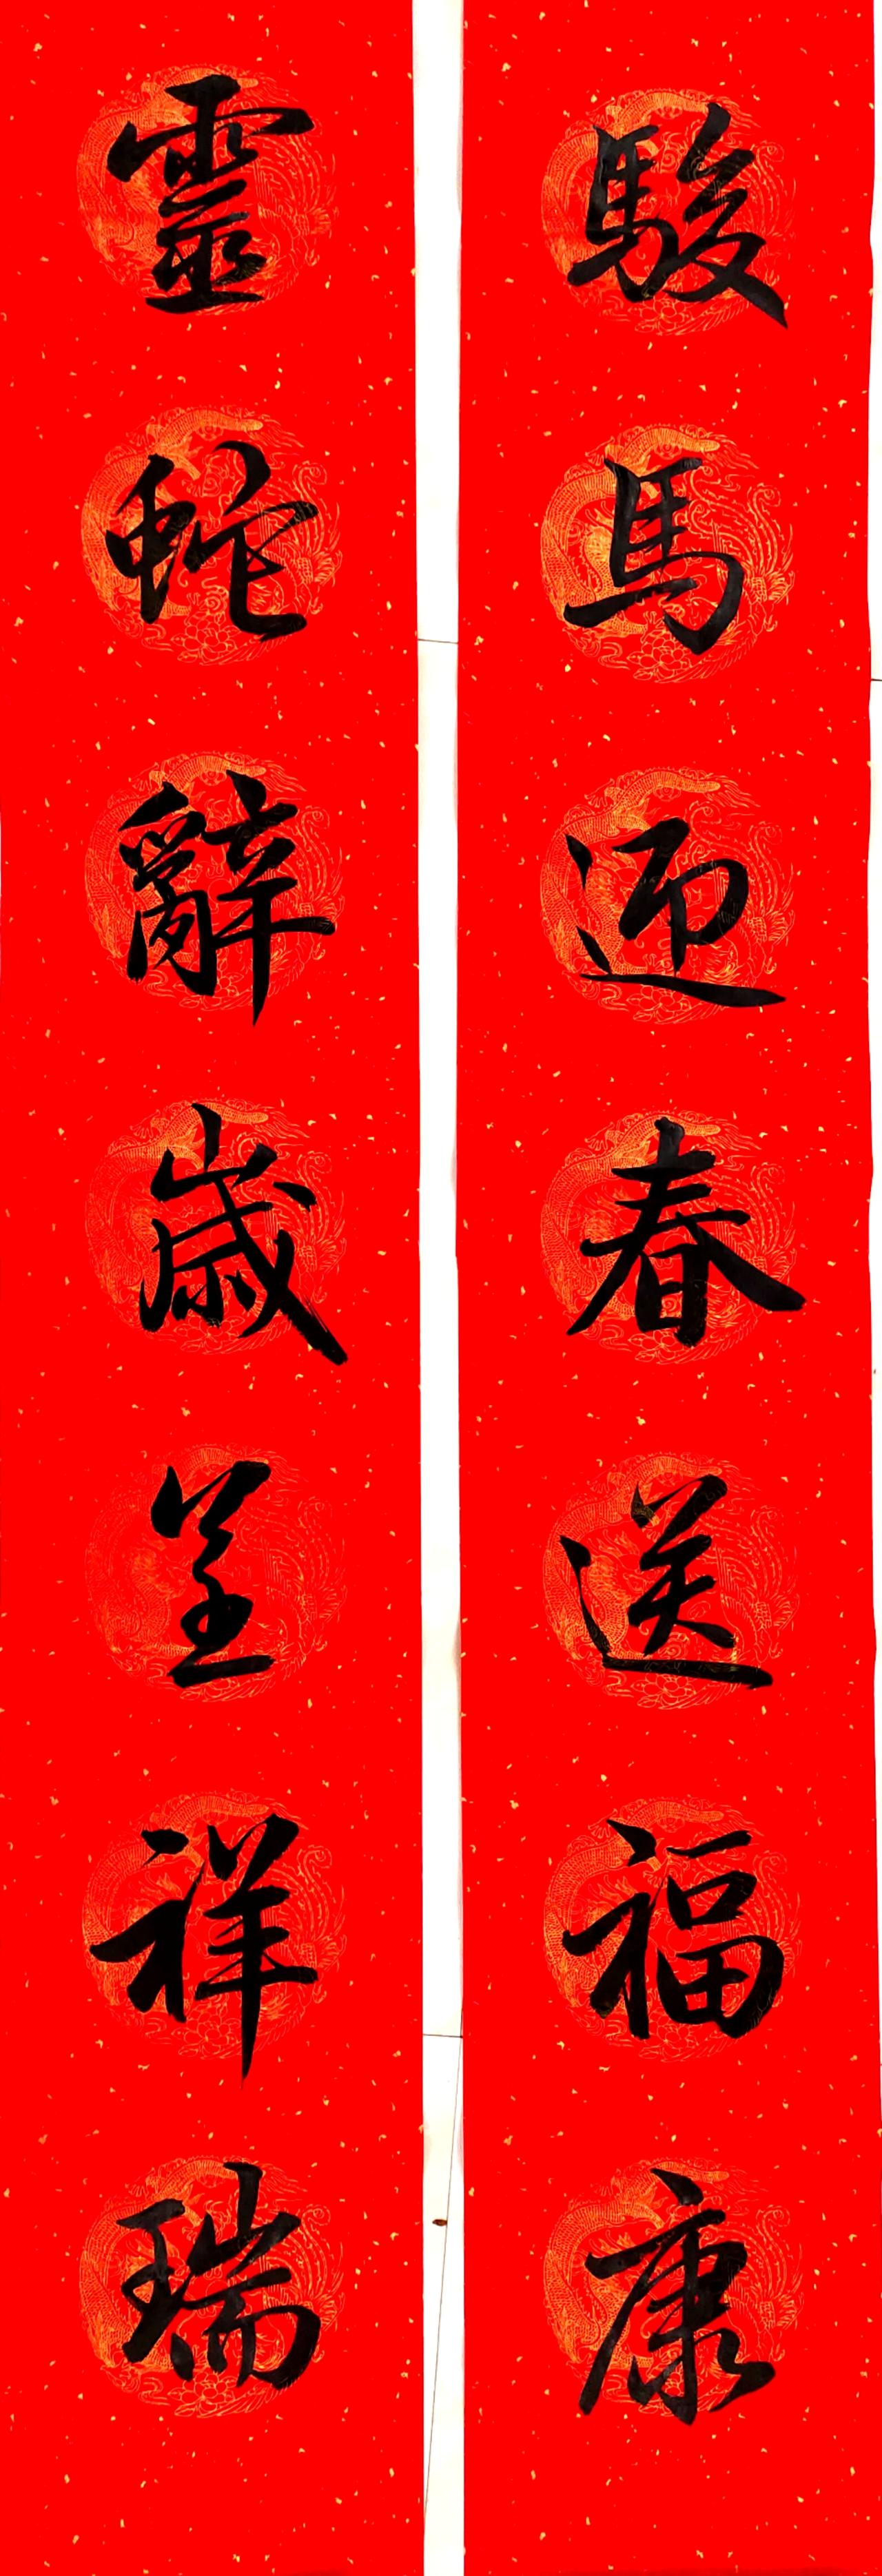 靈蛇辭歲呈祥瑞
駿馬迎春送福康